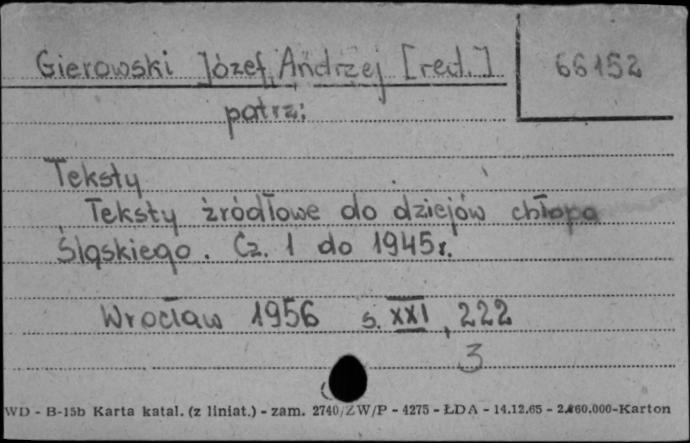 Gierowski Józef Andrzej [red.] 66152
patrz:
Teksty
Teksty źródłowe do dziejów chłopa
Śląskiego. Cz. 1 do 1945r.
Wrocław 1956 s. XXI, 222
3
WD - B-15b Karta katal. (z liniat.) - zam. 2740/ZW/P - 4275 - ŁDA - 14.12.65 - 2.260.000-Karton